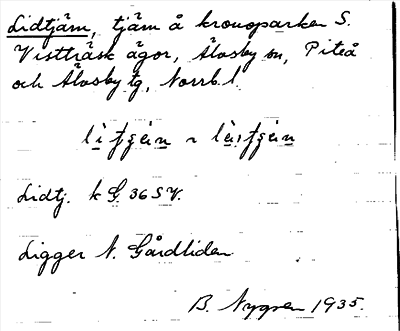 Lidtjärn, tjärn å kronoparken S.
Vistträsk ägor, Älvsby sn, Piteå
och Älvsby tg, Norrb. l.
Lidtj. k G. 36 S V.
Ligger N. Gårdliden
B. Nygren 1935.